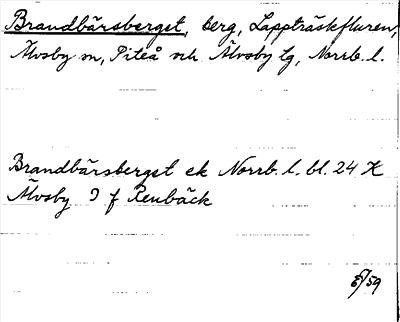 Brandbärsberget, berg, Lappträskfluren,
Älvsby sn, Piteå och Älvsby tg, Norrb. l.
Brandbärsberget ek Norrb. l. bl. 24 K
Älvsby D f Renbäck
59